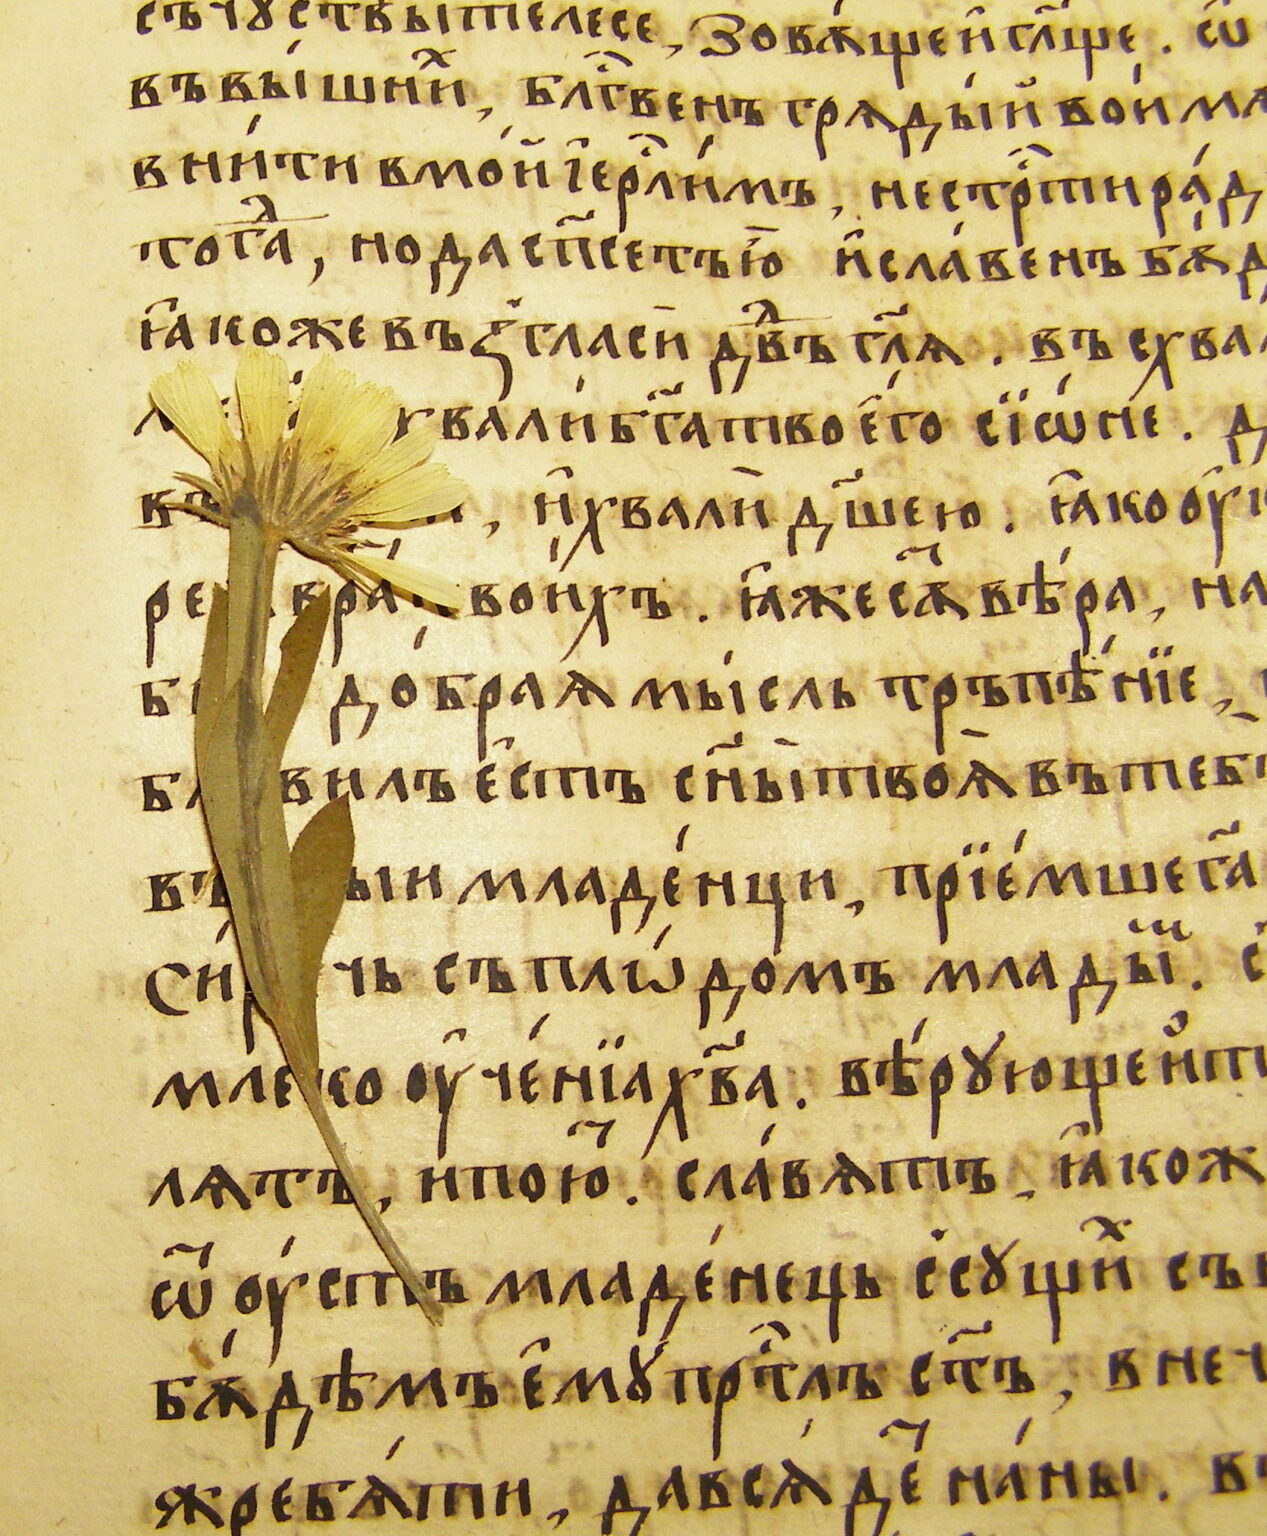 съ чꙋствы телесе, Зовѫще и҆ гл҃ще. ѡ҆
въ вы́шних, бл҃гⷭ҇венъ грѧды́й во и҆мѧ
вни́ти в мо́й і҆ерⷭ҇ли́мъ, не стрⷭ҇ти ра́д
тогда̀, но да сп҃сетъ ю҆̀ и҆ сла́венъ бѫд
ꙗ҆коже въ ѯ҃ гласѝ дв҃дъ гл҃ѧ. въсхвал
хвалѝ б҃га твоего̀ сїѡ́не. д
и҆ хвалѝ дш҃ею. ꙗ҆ко ᲂу҆к
вра́ твои́хъ. ꙗ҆же сѫ҃ вѣ́ра, на
до́браѧ мы́сль трьпѣ́нїе,
е҆стъ сн҃ы̀ твоѧ̀ въ теб
младе́нци, прїе́мше г҃а
Си́рѣчь съ плѡ́домъ млады́и. с
млеко ᲂу҆че́нїа хв҃а. вѣ́рꙋюще и҆ т
лѧтъ, и пою҃. сла́вѧтъ, ꙗ҆кож
ѿ ᲂу҆стъ младе́нець с̾сꙋщи́х съ
бѫ́дѣмъ е҆мꙋ̀ прⷭ҇тлъ ст҃ъ, в неч
жребѧ́ти, да всѧ́де҃ на́ны. в